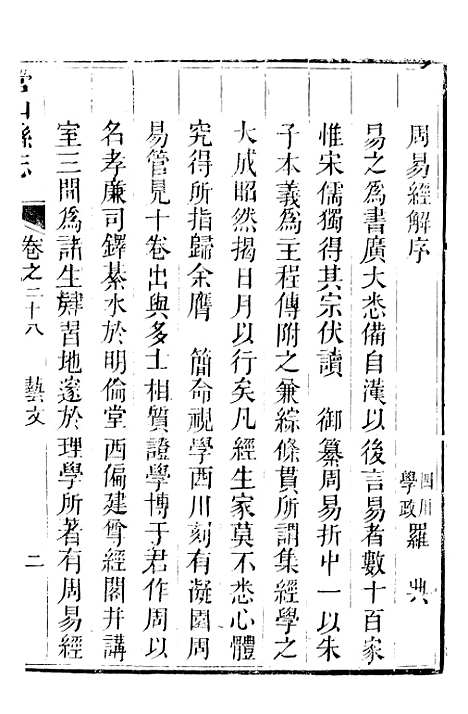 周易經解序
四川學政羅典
易之為書廣大悉備自漢以後言易者數十百家
惟宋儒獨得其宗伏讀　御纂周易折中一以朱
子本義為主程傳附之兼綜條貫所謂集經學之
大成昭然揭日月以行矣凡經生家莫不悉心體
究得所指歸余膺　簡命視學西川刻有凝園周
易管見十卷出與多士相質證學博于君作周以
名孝廉司鐸綦水於明倫堂西偏建尊經閣并講
室三間為諸生肄習地邃於理學所著有周易經
營山縣志
卷之二十八　藝文　二